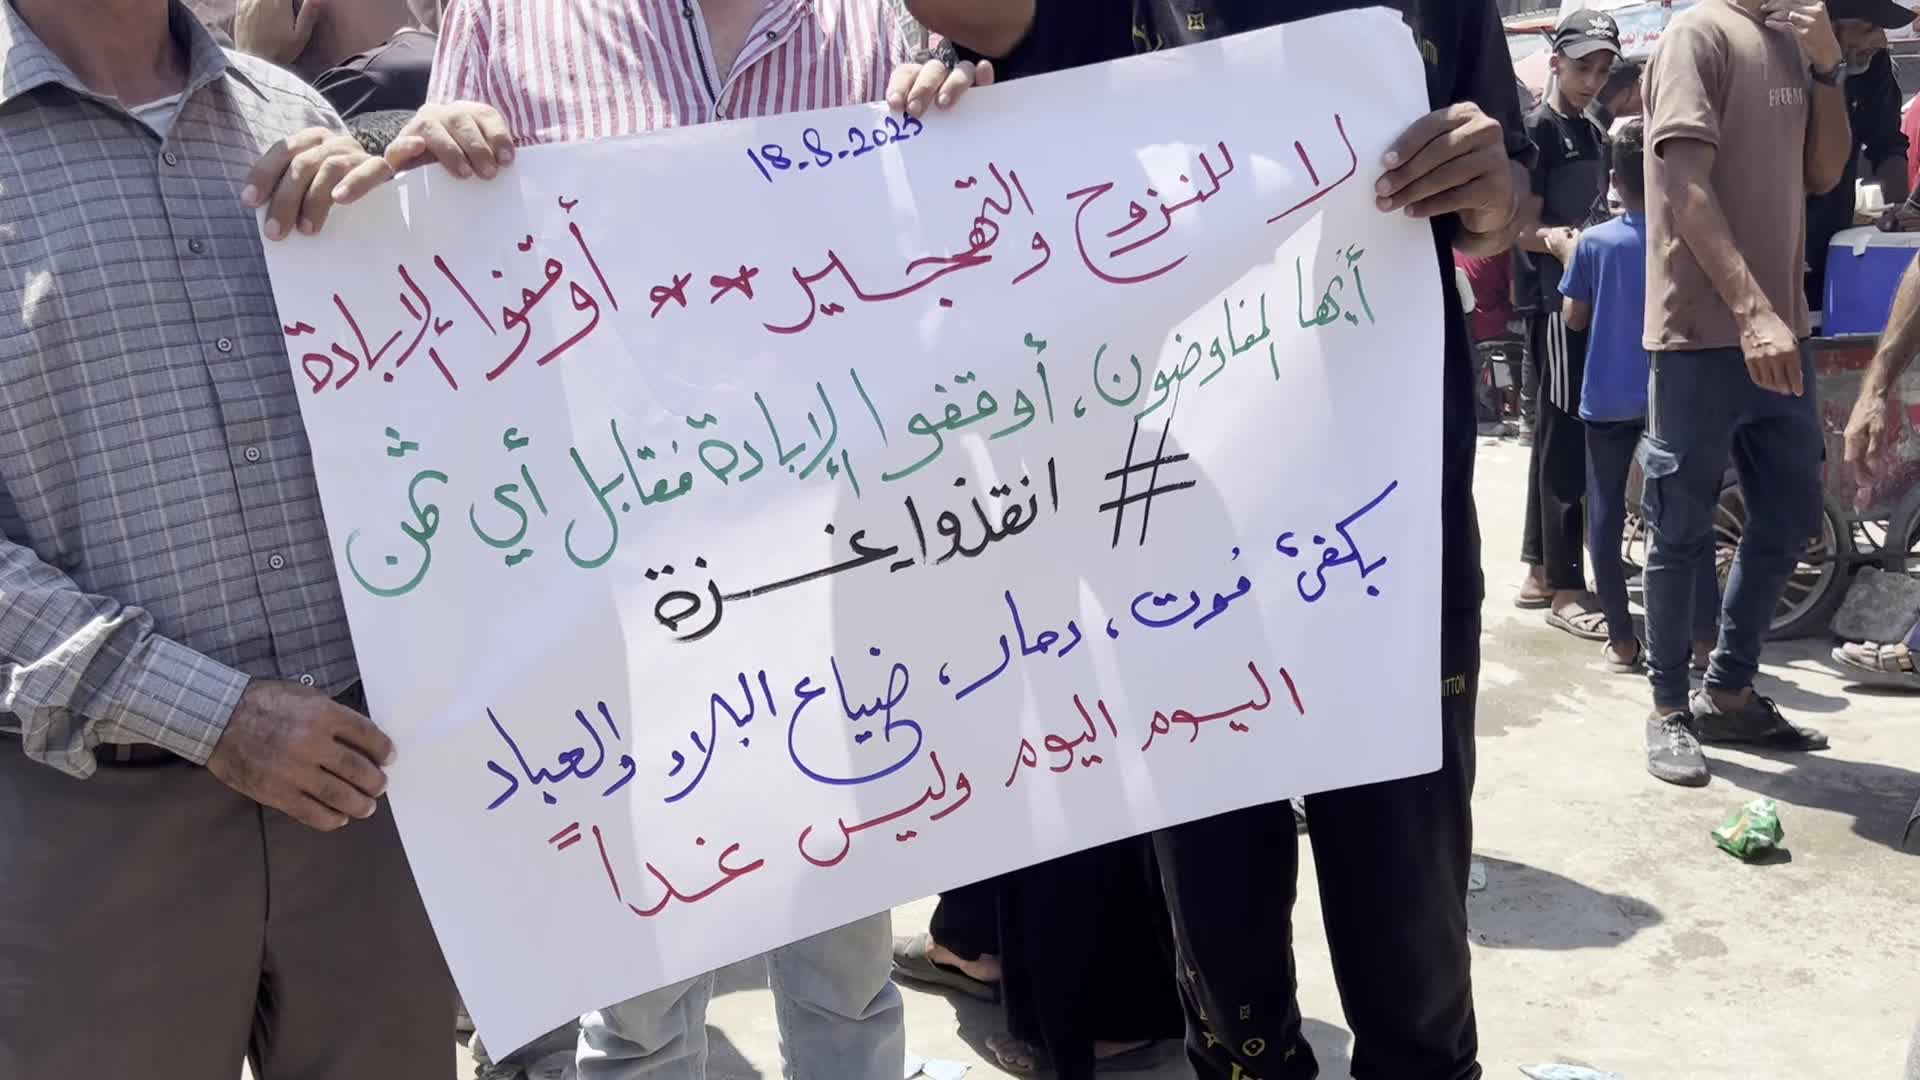 18-8-2025
لا للنزوح والتهجير ** أوقفوا الإبادة
أيها المفاوضون، أوقفوا الإبادة فقابل أي ثمن
# انقذوا غزة
يكفي موت، دمار، ضياع البلاد والعباد
اليوم اليوم وليس غداً
adidas
FREEDOM
UITTON